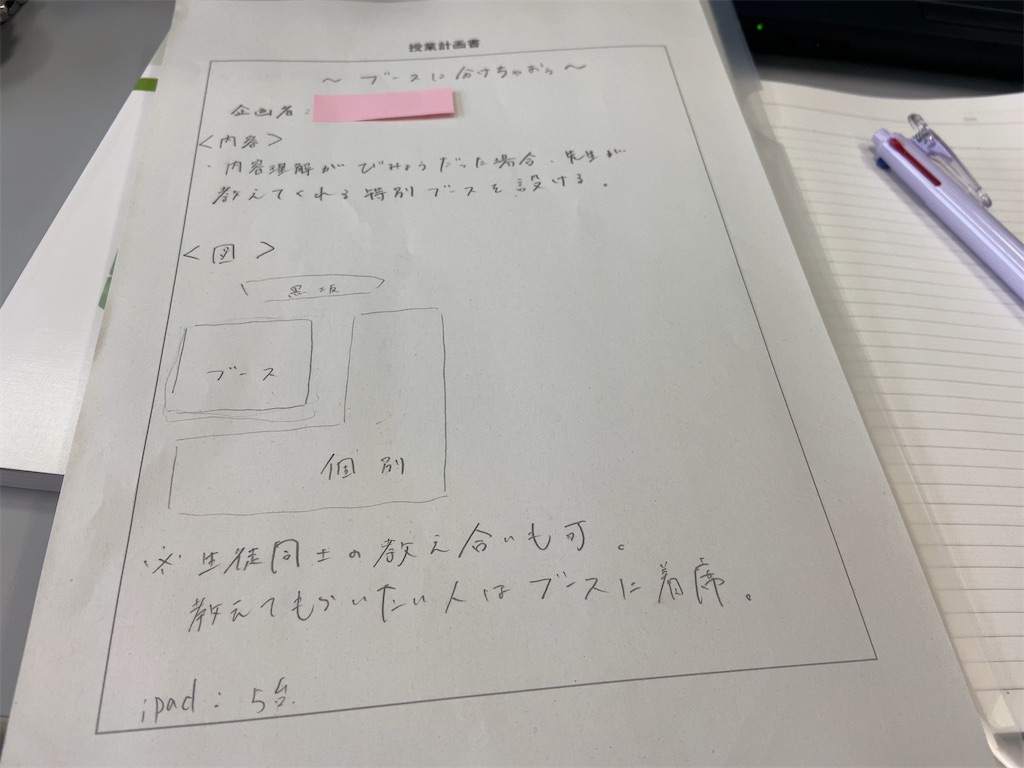 授業計画書
〜 ブースに分けちゃおう 〜
企画者:
<内容>
・内容理解がびみょうだった場合、先生が
教えてくれる特別ブースを設ける。
<図>
黒板
ブース
個別
※ 生徒同士の教え合いも可。
教えてもらいたい人はブースに着席。
ipad: 5台